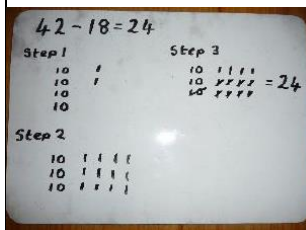 42 - 18 = 24
Step 1
10 I
10 I
10
10
Step 2
10 I I I I
10 I I I I
10 I I I I
Step 3
10 I I I I
10 I I I I
10 I I I I
= 24